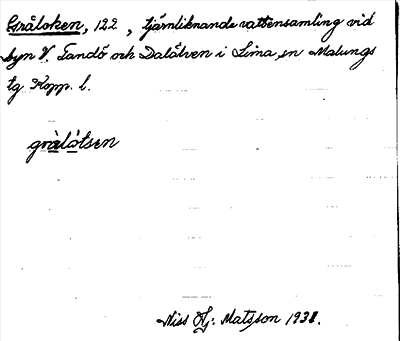 Gråloken, 122, tjärnliknande vattensamling vid
byn V. Tandö och Dalälven i Lima sn Malungs
tg Kopp. l.
gràlòtsen
Niss Hj. Matsson 1938.